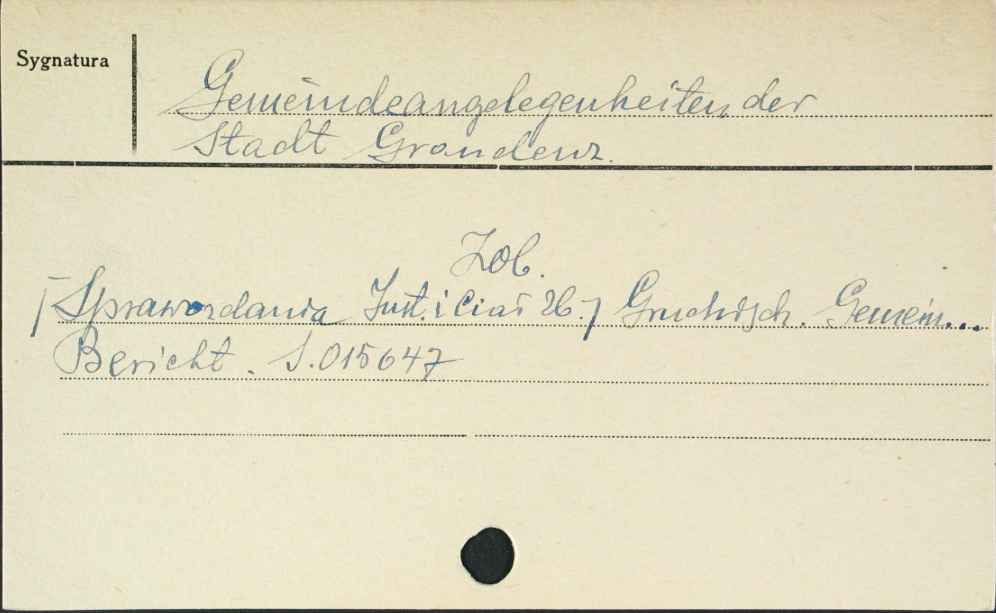 Sygnatura
Gemeindeangelegenheiten der
Stadt Graudenz.
Zob.
[Sprawozdania Inst. i Ciał Zb.] Gruchisch. Gemein...
Bericht. S.015647